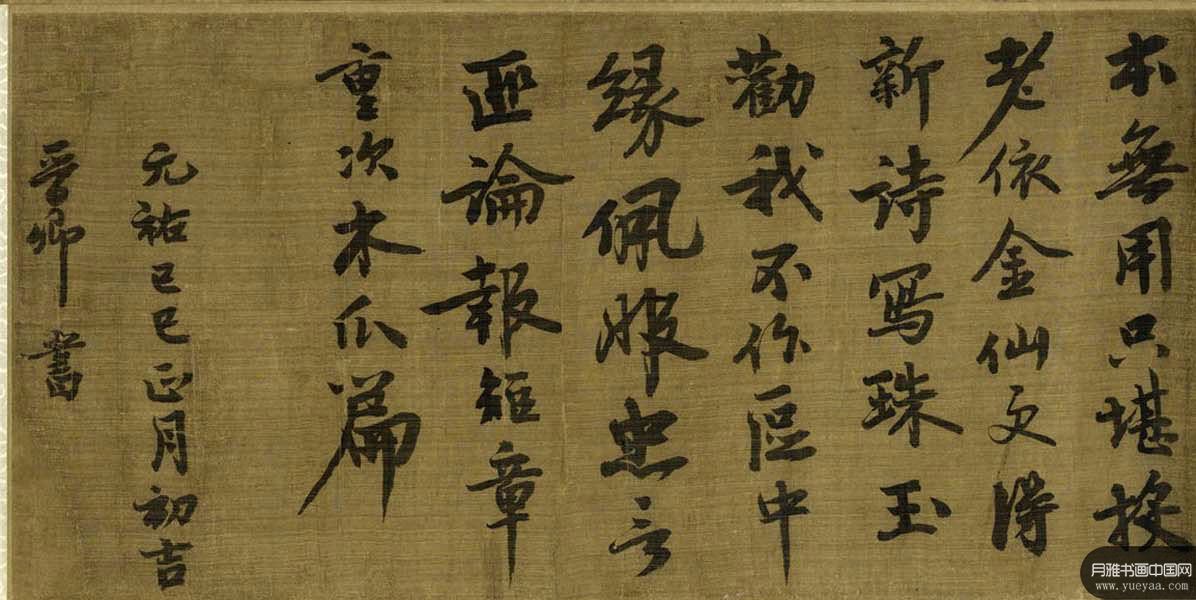 本無用只堪投
老依金仙更得
新詩寫珠玉
勸我不作區中
緣佩服忠言
匪論報短章
重次木瓜篇
元祐己巳正月初吉
晉卿書
月雅书画中国网
www.yueyaa.com